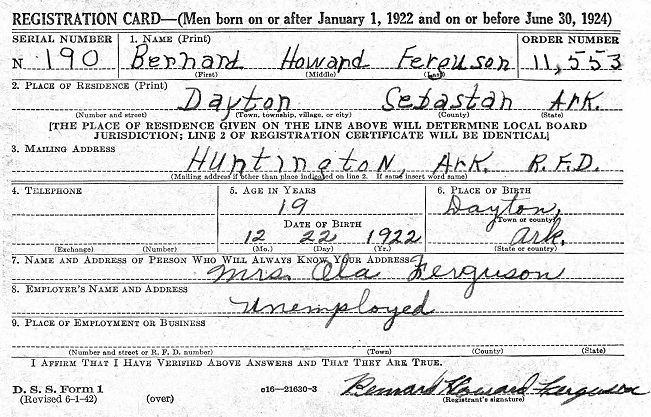 REGISTRATION CARD—(Men born on or after January 1, 1922 and on or before June 30, 1924)
SERIAL NUMBER 1. NAME (Print) ORDER NUMBER
N 190 Bernard Howard Ferguson 11,553
(First) (Middle) (Last)
2. PLACE OF RESIDENCE (Print)
Dayton Sebastan Ark.
(Number and street) (Town, township, village, or city) (County) (State)
[THE PLACE OF RESIDENCE GIVEN ON THE LINE ABOVE WILL DETERMINE LOCAL BOARD
JURISDICTION; LINE 2 OF REGISTRATION CERTIFICATE WILL BE IDENTICAL]
3. MAILING ADDRESS
Huntington, Ark. R.F.D.
(Mailing address if other than place indicated on line 2. If same insert word same)
4. TELEPHONE 5. AGE IN YEARS 6. PLACE OF BIRTH
19 Dayton,
(Town or county)
DATE OF BIRTH
12 22 1922 Ark.
(Exchange) (Number) (Mo.) (Day) (Yr.) (State or country)
7. NAME AND ADDRESS OF PERSON WHO WILL ALWAYS KNOW YOUR ADDRESS
Mrs. Ola Ferguson
8. EMPLOYER'S NAME AND ADDRESS
Unemployed
9. PLACE OF EMPLOYMENT OR BUSINESS
(Number and street or R. F. D. number) (Town) (County) (State)
I AFFIRM THAT I HAVE VERIFIED ABOVE ANSWERS AND THAT THEY ARE TRUE.
D. S. S. Form 1
(Revised 6-1-42) (over) c16—21630-3 Bernard Howard Ferguson
(Registrant's signature)